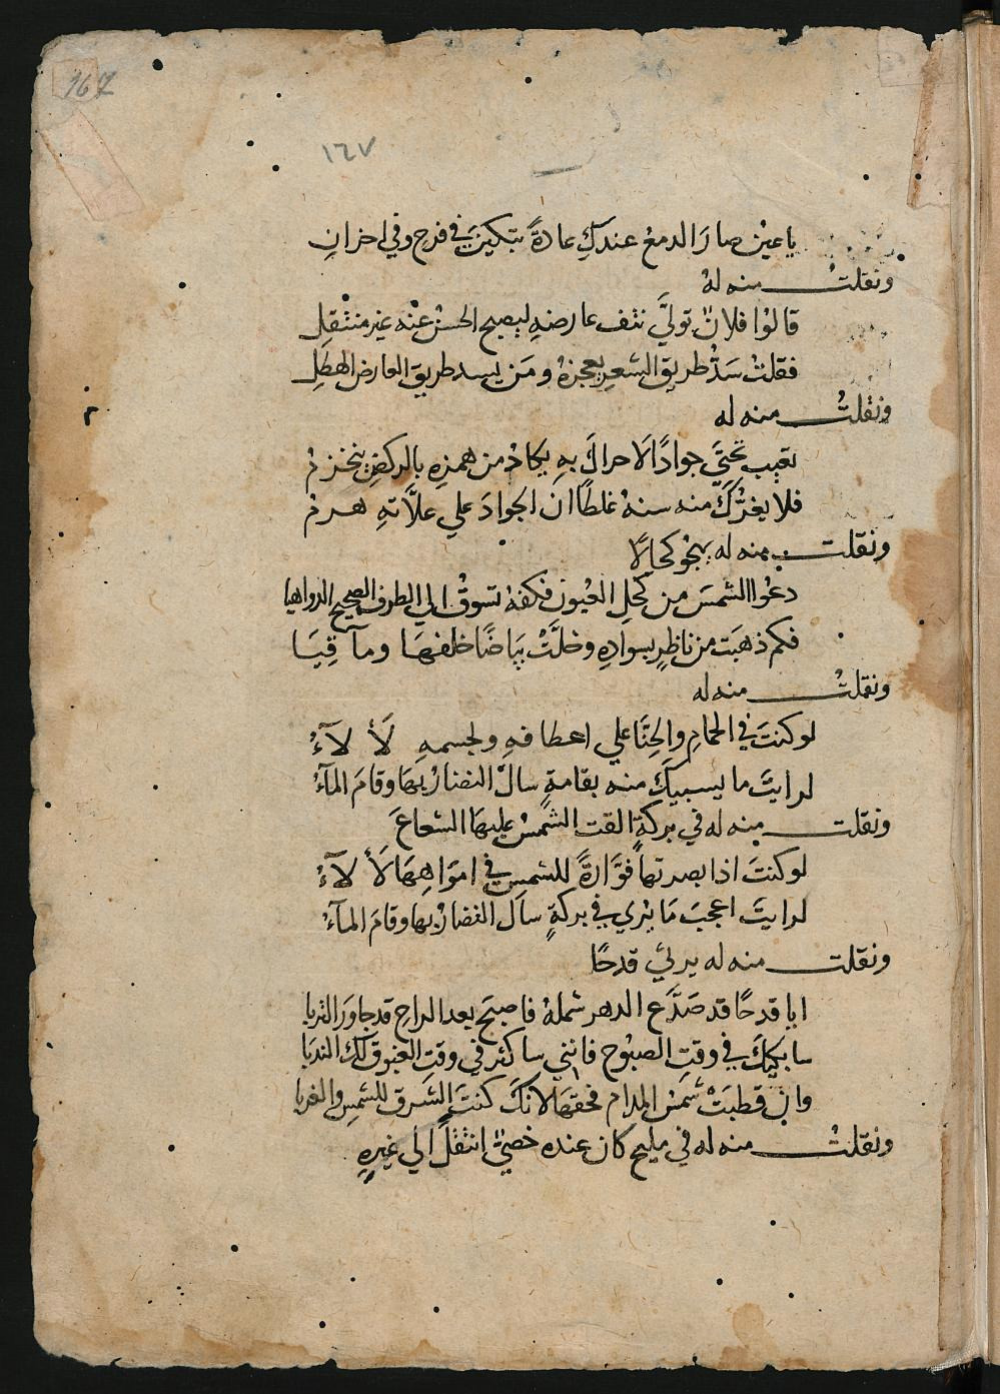 167
١٦٧
يا عين صارَ الدمعُ عندكِ عادةً تبكينَ في فرح وفي احزانِ
ونقلتُ منه لهُ
قالوُا فلانٌ توليَّ نتف عارضهِ ليصبح الحسنُ عنْه غير منتقلِ
فقلتُ سَدُّ طريق الشعرِ يعجزهُ ومَن يسد طريق العارض الهطلِ
ونقلتُ منه له
تحتيَ جوادًا لَا حراكَ بهِ يكادُ من همزهِ بالركضِ ينخزمُ
فلا يغرُّكَ منه سنهُ غلطًا ان الجوادَ علي علاَّتهِ هرمُ
ونقلت منه له يهجُو كحالًا
دعُوا الشمسَ من كحلِ العيُون فكفهُ تسوقُ الي الطرف الصحيح الدواهيا
فكم ذهبَت من ناظرٍ بسوادِهِ وخلَّتْ بيَاضًا خلفهَا ومآقِيَا
ونقلتُ منه له
لو كنتَ في الحمامِ والحِنَّا علي اعطافهِ ولجسمهِ لَأْلآءُ
لرايتَ ما يسبيكَ منه بقامةٍ سالَ النضارُ بهَا وقامَ المآءُ
ونقلت منه له في بركةٍ القت الشمسُ عليهَا الشعاعَ
لو كنتَ اذا بصرتها فوَّارةً للشمسِ في امواههَا لَأْلآءُ
لرايتَ اعجبَ مَا يُري في بركةٍ سال النضارُ بها وقامَ المآءُ
ونقلت منه له يرثي قدحًا
ايا قدحًا قد صَدَّع الدهر شملهُ فاصبحَ بعد الراحِ قد جاورَ التربا
سابكيكَ في وقتِ الصبُوح فانني ساكثر في وقتِ الغبوق لكَ الندبَا
وان قطبَتْ شمسُ المدام فحقهَا لانكَ كنتَ الشرق للشمسِ والغربا
ونقلتُ منه له في مليح كان عنده خصيٌّ انتقلَ الي غيرهِ